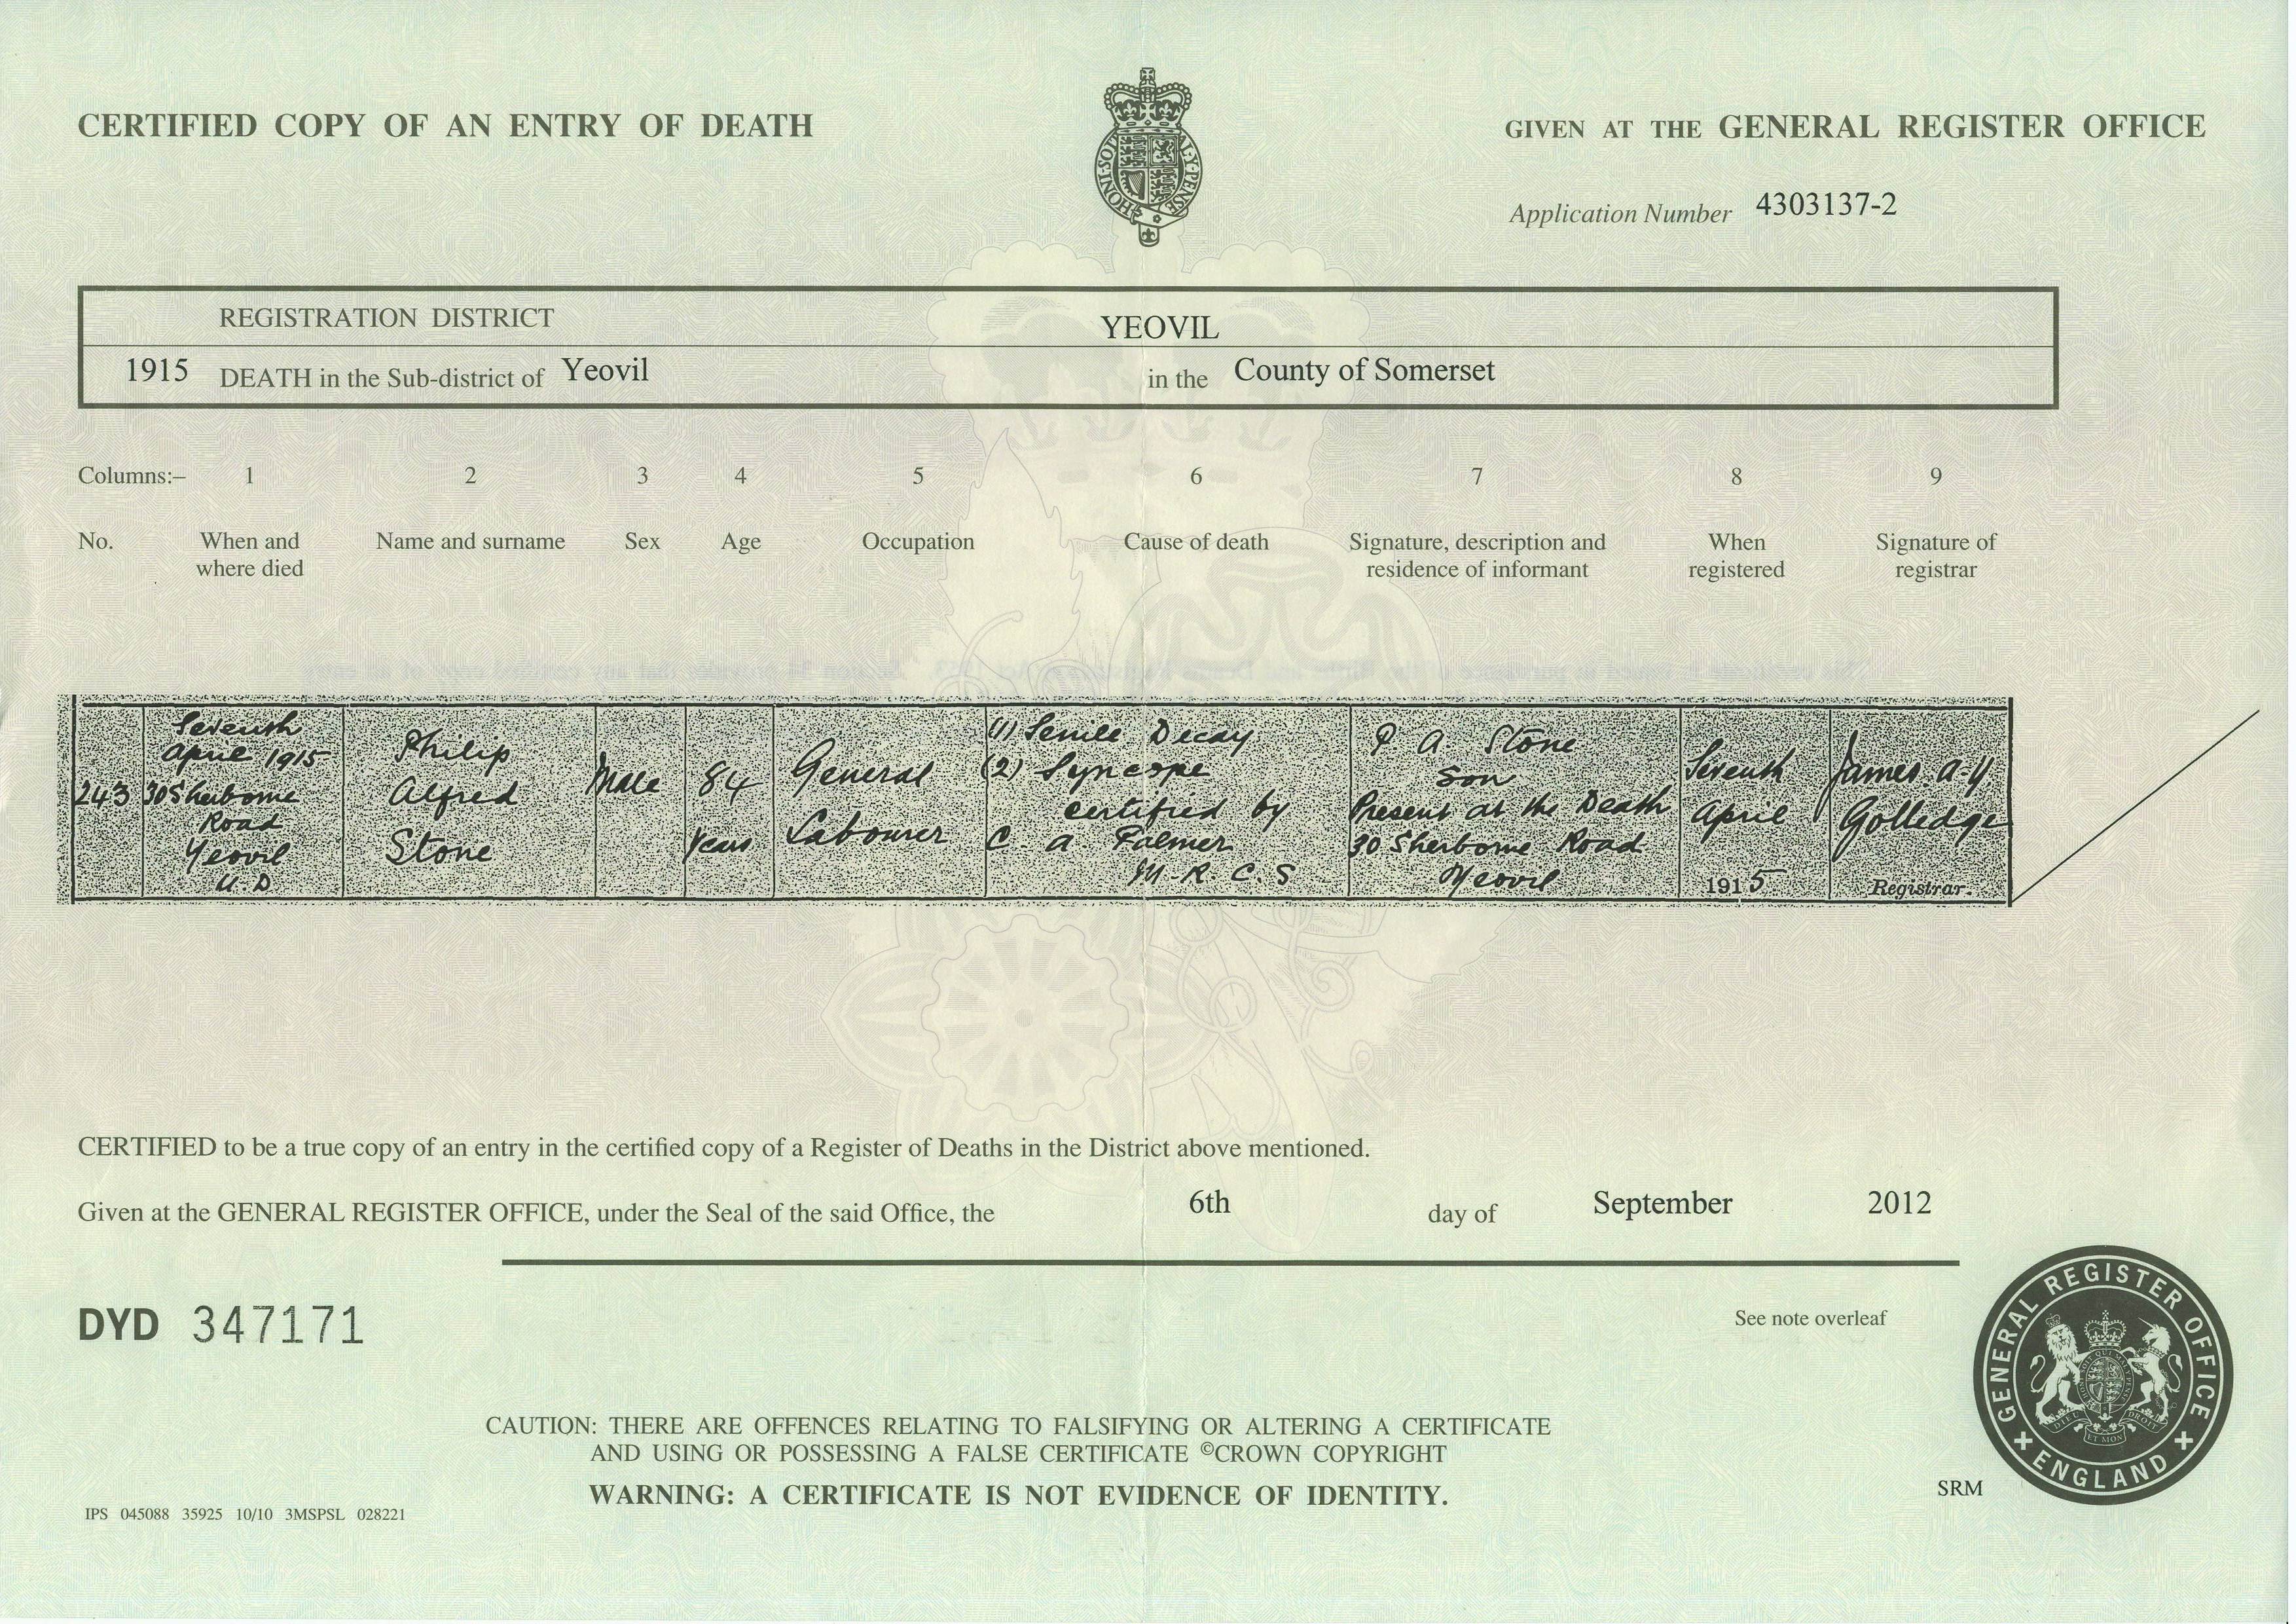 CERTIFIED COPY OF AN ENTRY OF DEATH
GIVEN AT THE GENERAL REGISTER OFFICE
HONI·SOI AL·Y·PENSE
Application Number 4303137-2
REGISTRATION DISTRICT YEOVIL
1915 DEATH in the Sub-district of Yeovil in the County of Somerset
Columns:– 1 2 3 4 5 6 7 8 9
No.
When and
where died
Name and surname
Sex
Age
Occupation
Cause of death
Signature, description and
residence of informant
When
registered
Signature of
registrar
243
Seventh
April 1915
30 Sherborne
Road
Yeovil
U-D
Philip
Alfred
Stone
Male
84
years
General
Labourer
(1) Senile Decay
(2) Syncope
certified by
C. A. Palmer
M-R.C.S
P A. Stone
Son
Present at the Death
30 Sherborne Road
Yeovil
Seventh
April
1915
James. A-Y
Golledge
Registrar.
CERTIFIED to be a true copy of an entry in the certified copy of a Register of Deaths in the District above mentioned.
Given at the GENERAL REGISTER OFFICE, under the Seal of the said Office, the 6th day of September 2012
DYD 347171
See note overleaf
CAUTION: THERE ARE OFFENCES RELATING TO FALSIFYING OR ALTERING A CERTIFICATE
AND USING OR POSSESSING A FALSE CERTIFICATE ©CROWN COPYRIGHT
WARNING: A CERTIFICATE IS NOT EVIDENCE OF IDENTITY.
IPS 045088 35925 10/10 3MSPSL 028221
SRM
GENERAL REGISTER OFFICE
ENGLAND
DIEU ET MON DROIT